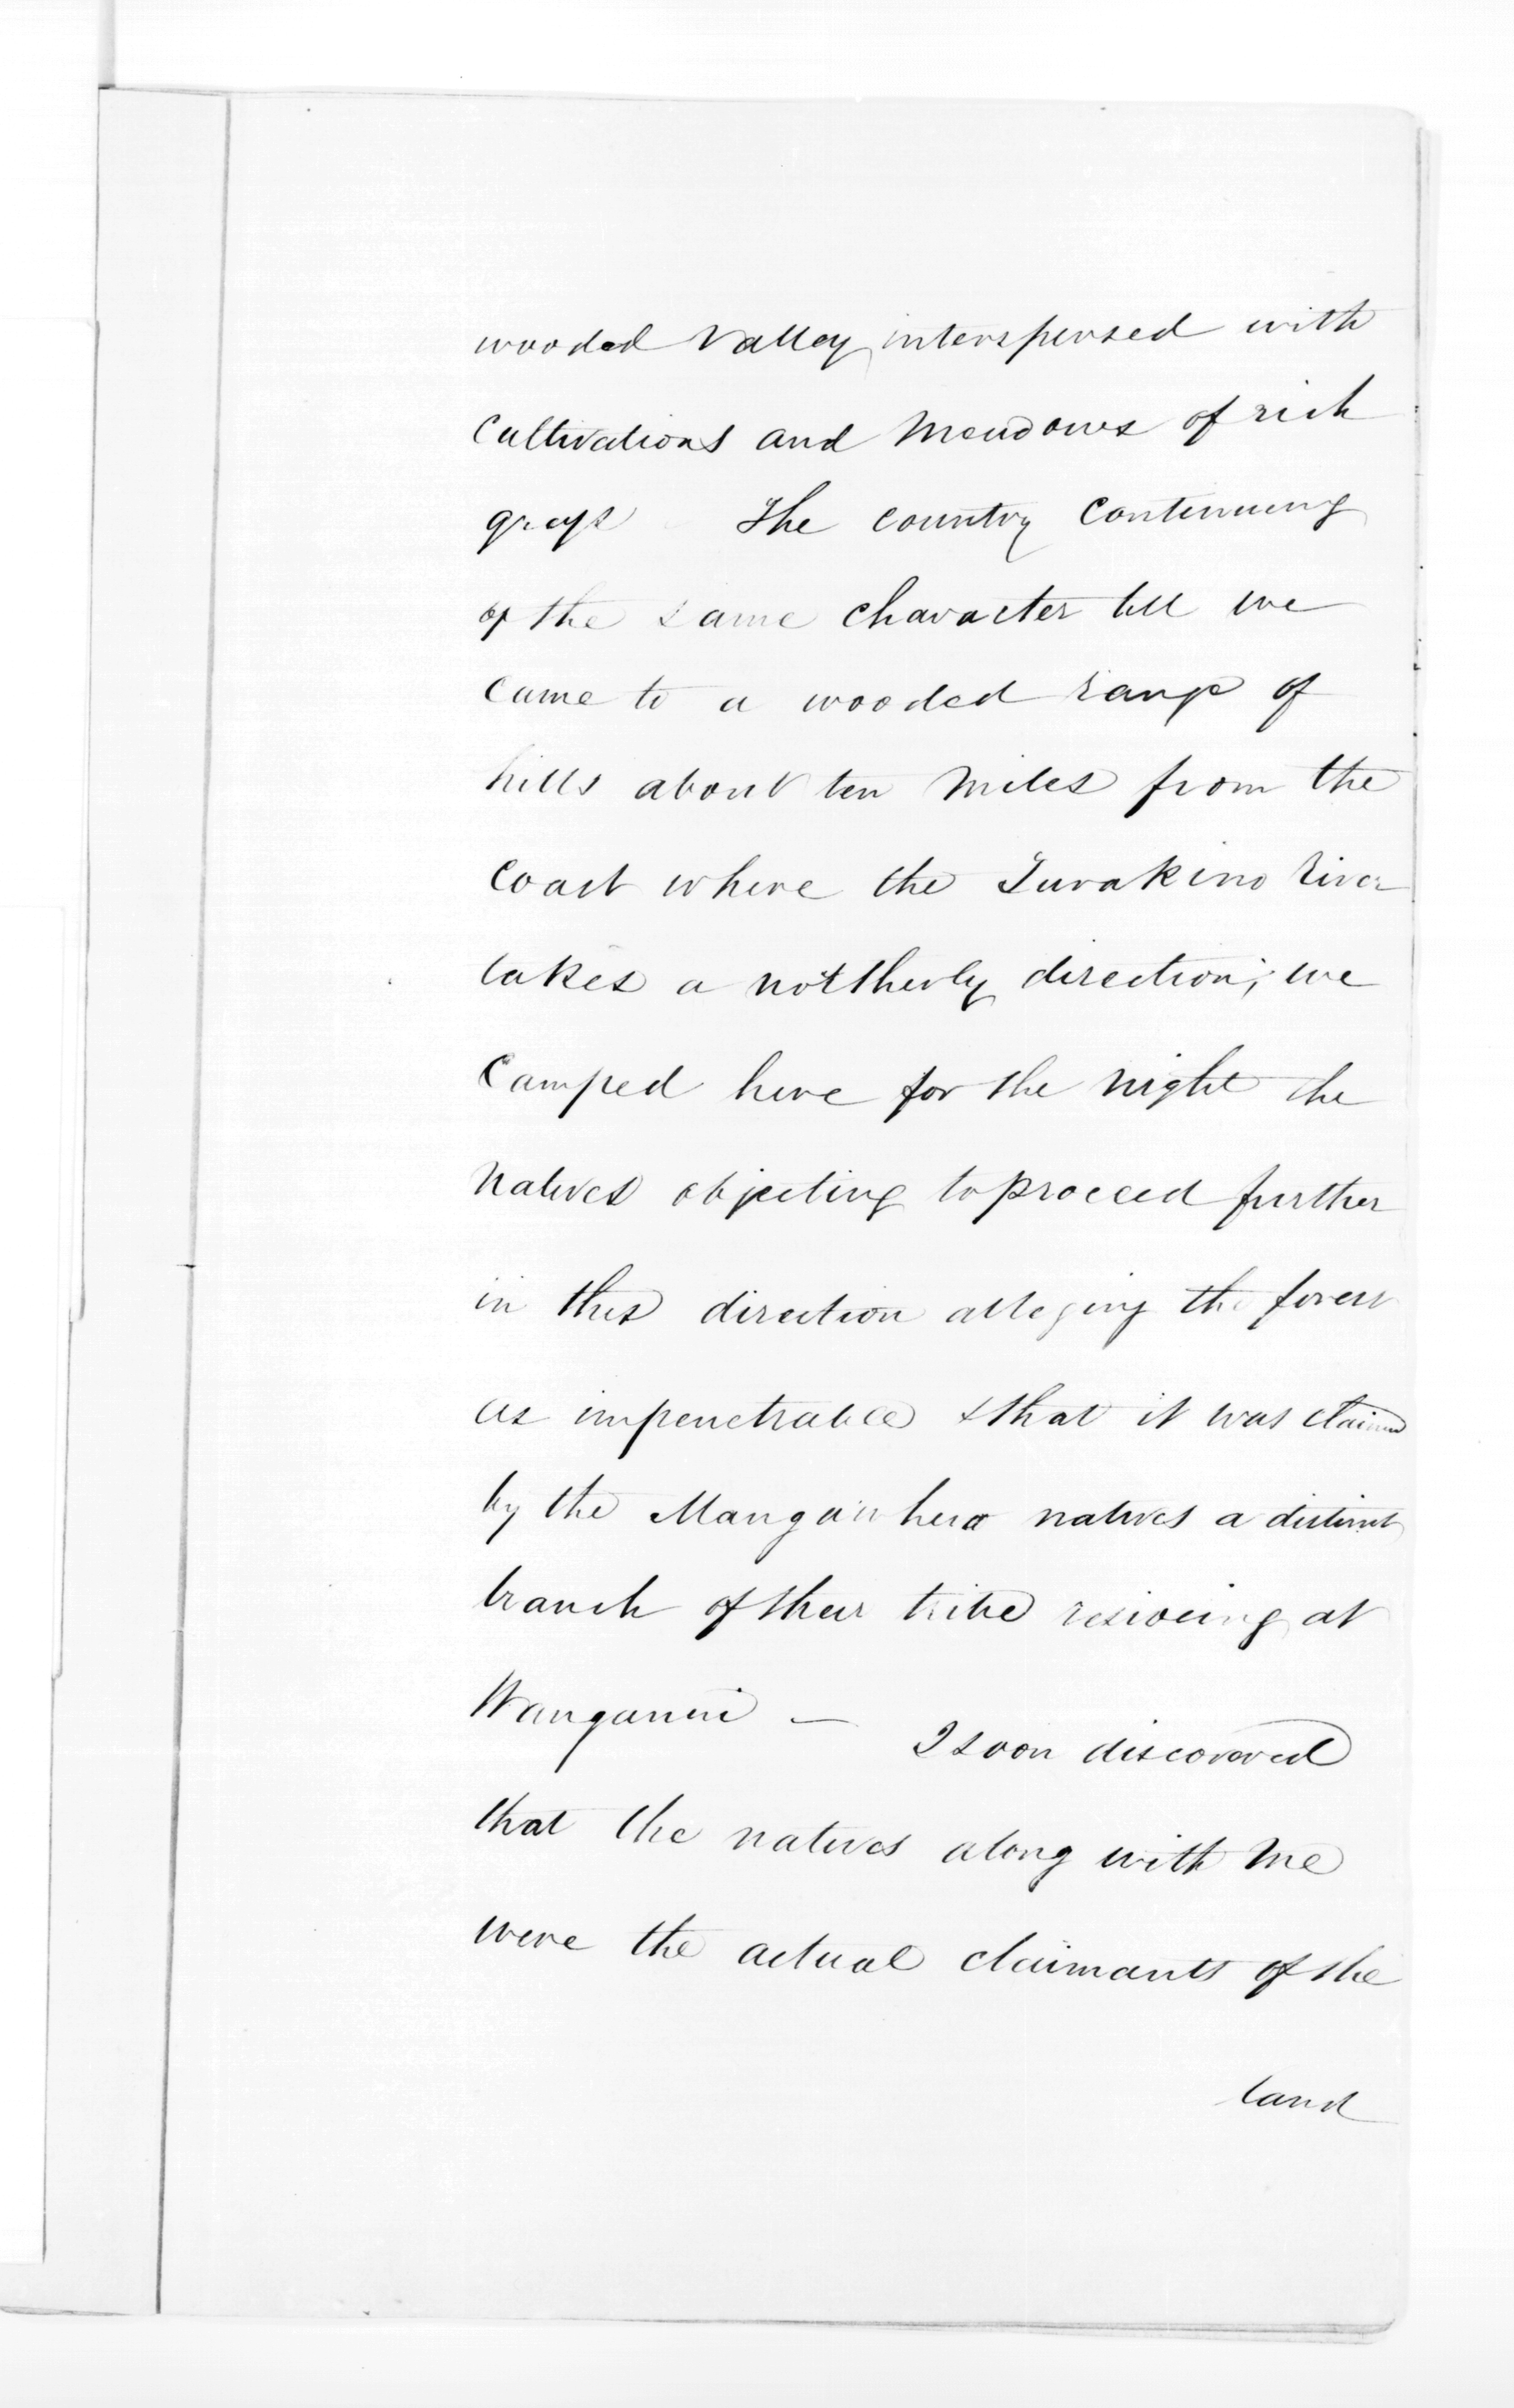 wooded Valley interspersed with
Cultivations and Meadows of rich
grass The country Continuing
of the same character till we
came to a wooded range of
hills about ten Miles from the
Coast where the Turakino River
takes a notherly direction; we
Camped here for the night the
Natives objecting to proceed further
in this direction alleging the forest
as impenetrable & that it was claimed
by the Mangawhero natives a distinct
branch of their tribe residing at
Wanganui —
I soon discovered
that the natives along with Me
were the actual claimants of the
land